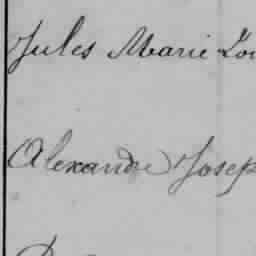 Jules Marie Lou
Alexandre Josep